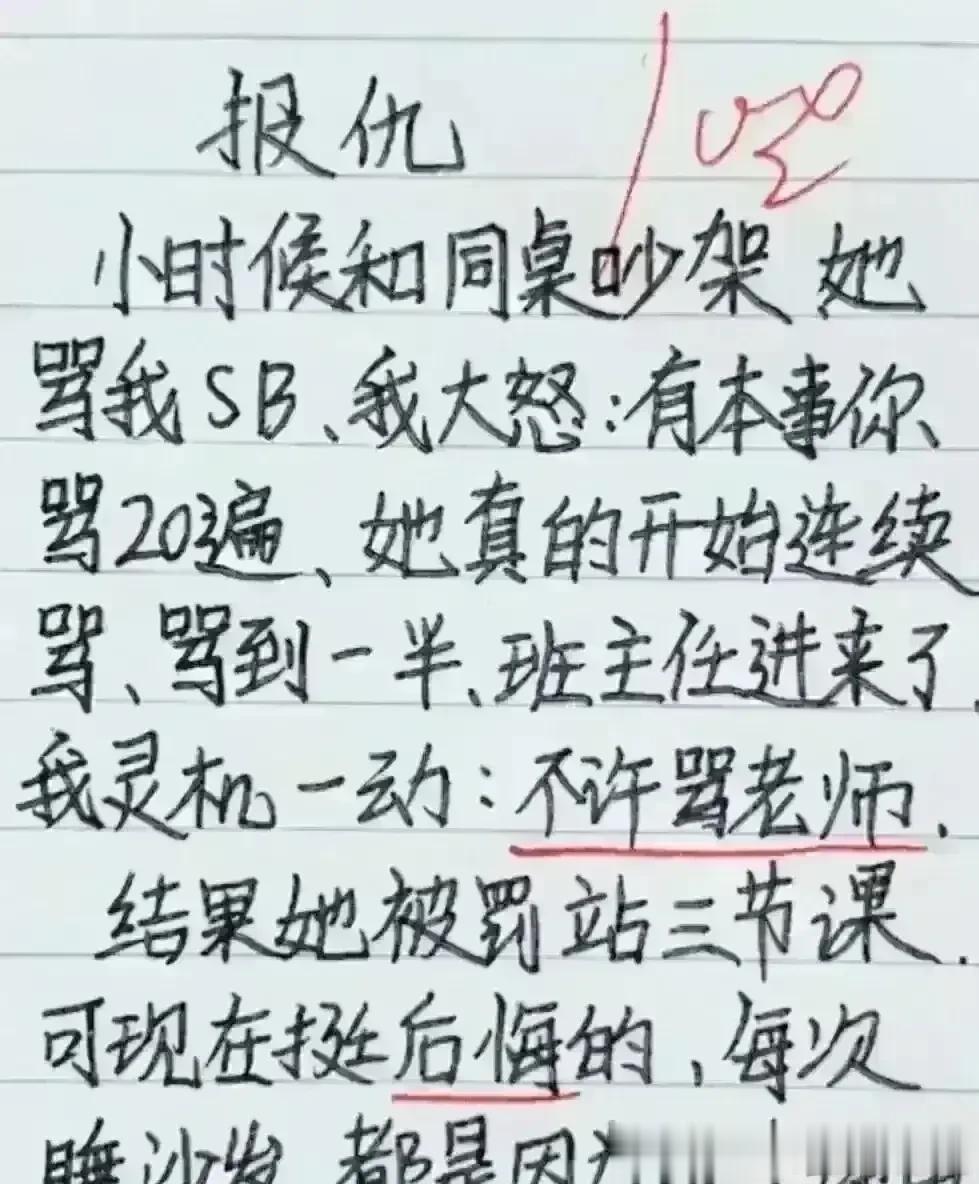 报仇
小时候和同桌吵架 她
骂我SB、我大怒:有本事你、
骂20遍、她真的开始连续
骂、骂到一半、班主任进来了.
我灵机一动:不许骂老师.
结果她被罚站三节课.
可现在挺后悔的,每次
睡沙发 都是因